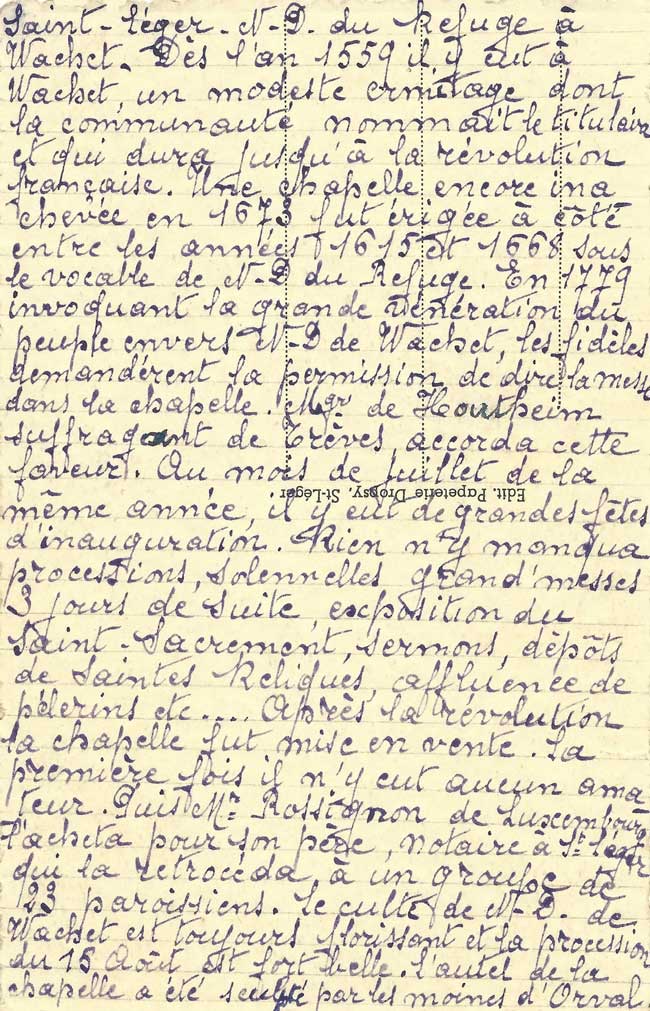 Saint-Léger. N-D. du Refuge à
Wachet. Dès l'an 1559 il y eut à
Wachet, un modeste ermitage dont
la communauté nommait le titulaire
et qui dura jusqu'à la révolution
française. Une chapelle encore ina
chevée en 1673 fut érigée à côté
entre les années 1615 et 1668 sous
le vocable de N-D du Refuge. En 1779
invoquant la grande vénération du
peuple envers N-D de Wachet, les fidèles
demandèrent la permission de dire la messe
dans la chapelle. Mgr de Houtheim
suffragant de Trèves accorda cette
faveur. Au mois de juillet de la
Edit. Papeterie Dropsy, St-Léger
même année, il y eut de grandes fêtes
d'inauguration. Rien n'y manqua
processions, solennelles grand'messes
3 jours de suite, exposition du
Saint-Sacrement, sermons, dépôts
de Saintes Reliques, affluence de
pélerins etc.... Après la révolution
la chapelle fut mise en vente. La
première fois il n'y eut aucun ama
teur. Puis Mr. Rossignon de Luxembourg
l'acheta pour son père, notaire à St Léger
qui la retrocéda, à un groupe de
23 paroissiens. Le culte de N-D. de
Wachet est toujours florissant et la procession
du 15 Août est fort belle. L'autel de la
chapelle a été sculpté par les moines d'Orval.